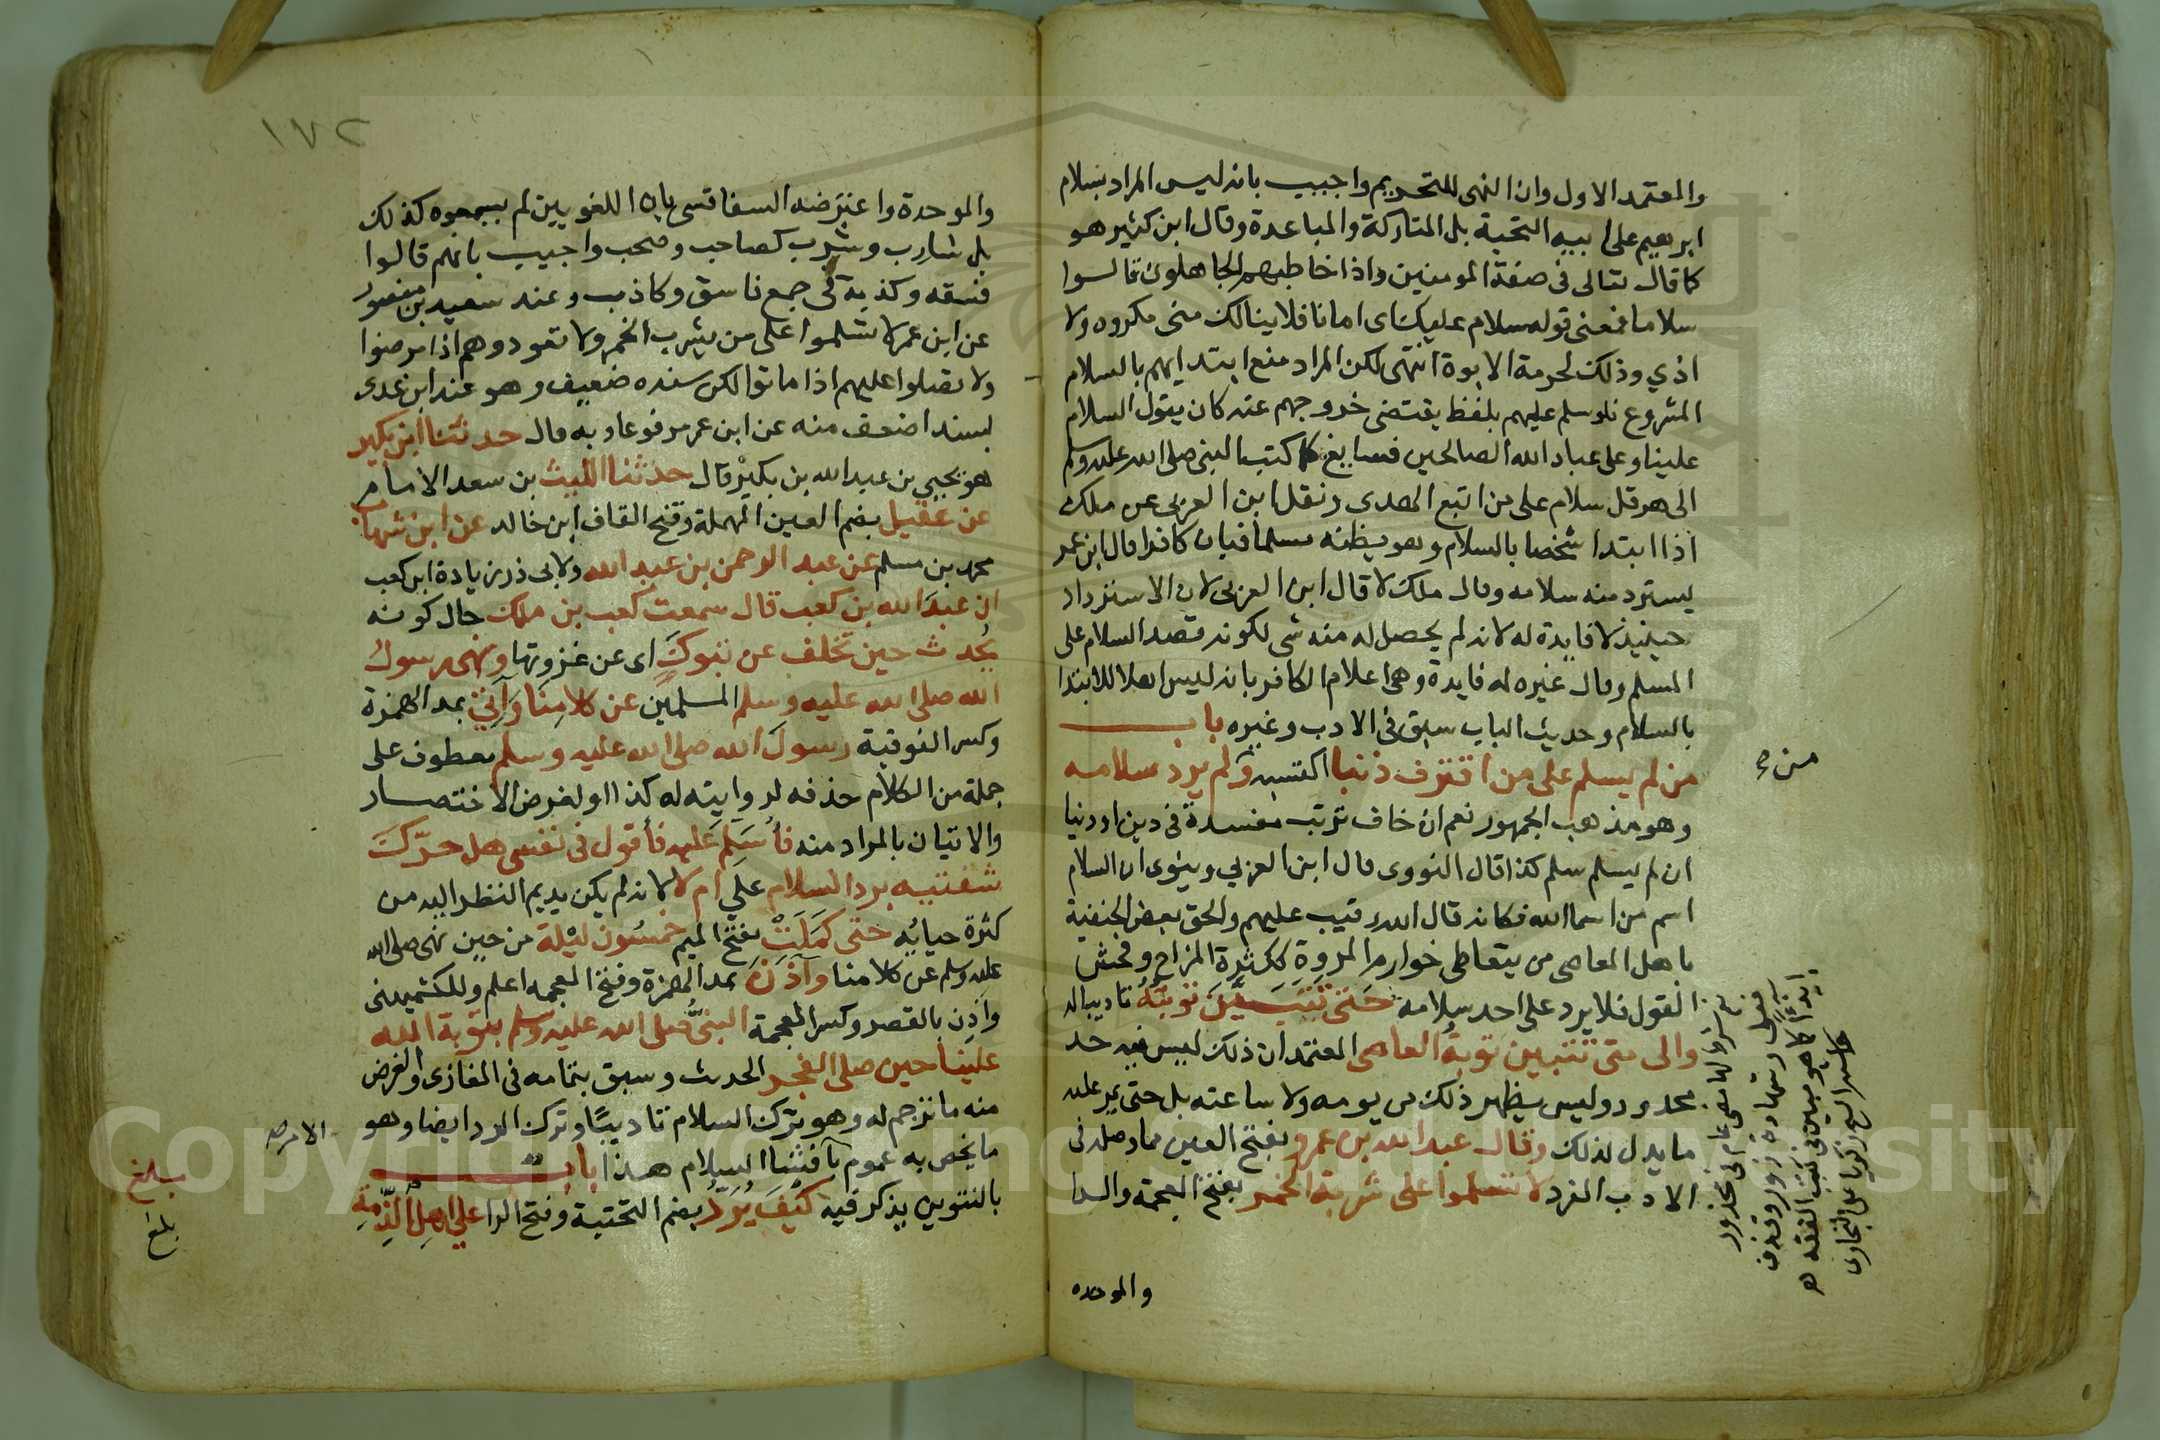 والمعتمد الاول وان النهى للتحريم واجيب بانه ليس المراد بسلام
ابرهيم على ابيه التحية بل المتاركة والمباعدة وقال ابن كثير هو
كما قال تعالى فى صفة المومنين واذا خاطبهم الجاهلون قالوا
سلاما فمعنى قوله سلام عليك اى امانا فلا ينالك منى مكروه ولا
اذي وذلك لحرمة الابوة انتهى لكن المراد منع ابتدايهم بالسلام
المشروع فلو سلم عليهم بلفظ يقتضى خروجهم عنه كان يقول السلام
علينا وعلى عباد الله الصالحين فسايغ كما كتب النبى صلى الله عليه وسلم
الى هرقل سلام على من اتبع الهدى ونقل ابن العربى عن ملك
اذا ابتدا شخصا بالسلام وهو يظنه مسلما فبان كافرا قال ابن عمر
يسترد منه سلامه وقال ملك لا قال ابن العربى لان الاسترداد
حينيذ لا فايدة له لانه لم يحصل له منه شى لكونه قصد السلام على
المسلم وقال غيره له فايدة وهى اعلام الكافر بانه ليس اهلا للابتدا
بالسلام وحديث الباب سبق فى الادب وغيره باب
من لم يسلم على من اقترف ذنبا اكتسبه ولم يرد سلامه
وهو مذهب الجمهور نعم ان خاف ترتب مفسدة فى دين او دنيا
ان لم يسلم سلم كذا قال النووى قال ابن العربي وينوى ان السلام
اسم من اسما الله فكانه قال الله رقيب عليهم والحق بعض الحنفية
باهل المعاصى من يتعاطى خوارم المروة ككثرة المزاح وفحش
القول فلا يرد على احد سلامه حتى تتبين توبته تاديبا له
والى متى تتبين توبة العاصى المعتمد ان ذلك ليس فيه حد
محدود وليس يظهر ذلك من يومه ولا ساعته بل حتى يمر عليه
ما يدل لذلك وقال عبد الله بن عمرو بفتح العين مما وصله فى
الادب المفرد لا تسلموا على شربة الخمر بفتح المعجمة والرا
والموحده
١٧٢
والموحدة واعترضه السفاقسى بان اللغويين لم يسمعوه كذلك
بل شارب وشرب كصاحب وصحب واجيب بانهم قالوا
فسقه وكذبة فى جمع فاسق وكاذب وعند سعيد بن منصور
عن ابن عمر لا تسلموا على من يشرب الخمر ولا تعودوهم اذا مرضوا
ولا تصلوا عليهم اذا ماتوا لكن سنده ضعيف وهو عند ابن عدى
بسند اضعف منه عن ابن عمر مرفوعا وبه قال حدثنا ابن بكير
هو يحيى بن عبد الله بن بكير قال حدثنا الليث بن سعد الامام
عن عقيل بضم العين المهملة وفتح القاف ابن خالد عن ابن شهاب
محمد بن مسلم عن عبد الرحمن بن عبد الله ولابى ذر زيادة ابن كعب
ان عبد الله بن كعب قال سمعت كعب بن ملك حال كونه
يحدث حين تخلف عن تبوك اى عن غزوتها ونهى رسول
الله صلى الله عليه وسلم المسلمين عن كلامنا وآتي بمد الهمزة
وكسر الفوقية رسول الله صلى الله عليه وسلم معطوف على
جملة من الكلام حذفه لروايته له كذا او لغرض الاختصار
والاتيان بالمراد منه فأسلم عليه فأقول فى نفسى هل حرّك
شفتيه برد السلام علي ام لا لانه لم يكن يديم النظر اليه من
كثرة حيايه حتى كملت بفتح الميم خمسون ليلة من حين نهى صلى الله
عليه وسلم عن كلامنا وآذن بمد الهمزة وفتح المعجمه اعلم وللكشميهنى
واذن بالقصر وكسر المعجمة النبى صلى الله عليه وسلم بتوبة الله
علينا حين صلى الفجر الحديث وسبق بتمامه فى المغازى والغرض
منه ما ترجم له وهو ترك السلام تاديبًا وترك الرد ايضا وهو
مما يخص به عموم بافشا السلام هذا باب
بالتنوين يذكر فيه كيف يُرَدُّ بضم التحتية وفتح الرا على اهل الذمة
الامر صح
بلغ
بلغ
Copyright © King Saud University